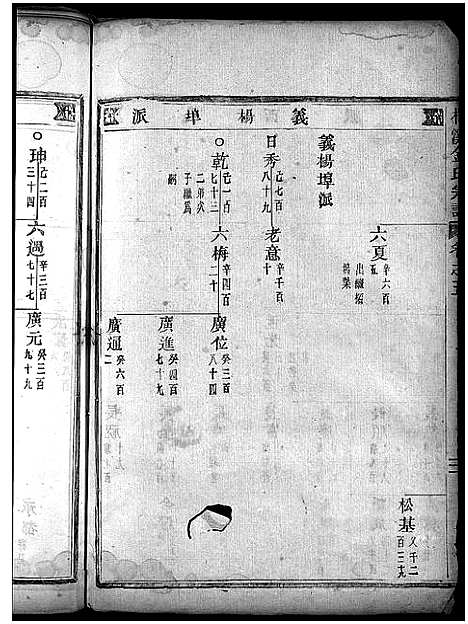 派埠楊義
義楊埠派
六夏
辛六百
五
出繼招
日秀
己七百
八十九
老意
辛千百
十
乾
己一百
七十三
二弟次
子繼爲
嗣
六梅
辛四百
二十
廣位
癸三百
八十四
廣進
癸四百
七十九
廣通
癸六百
二
松基
又千二
百三十九
珅
己二百
三十四
六過
辛三百
七十七
廣元
癸三百
九十九